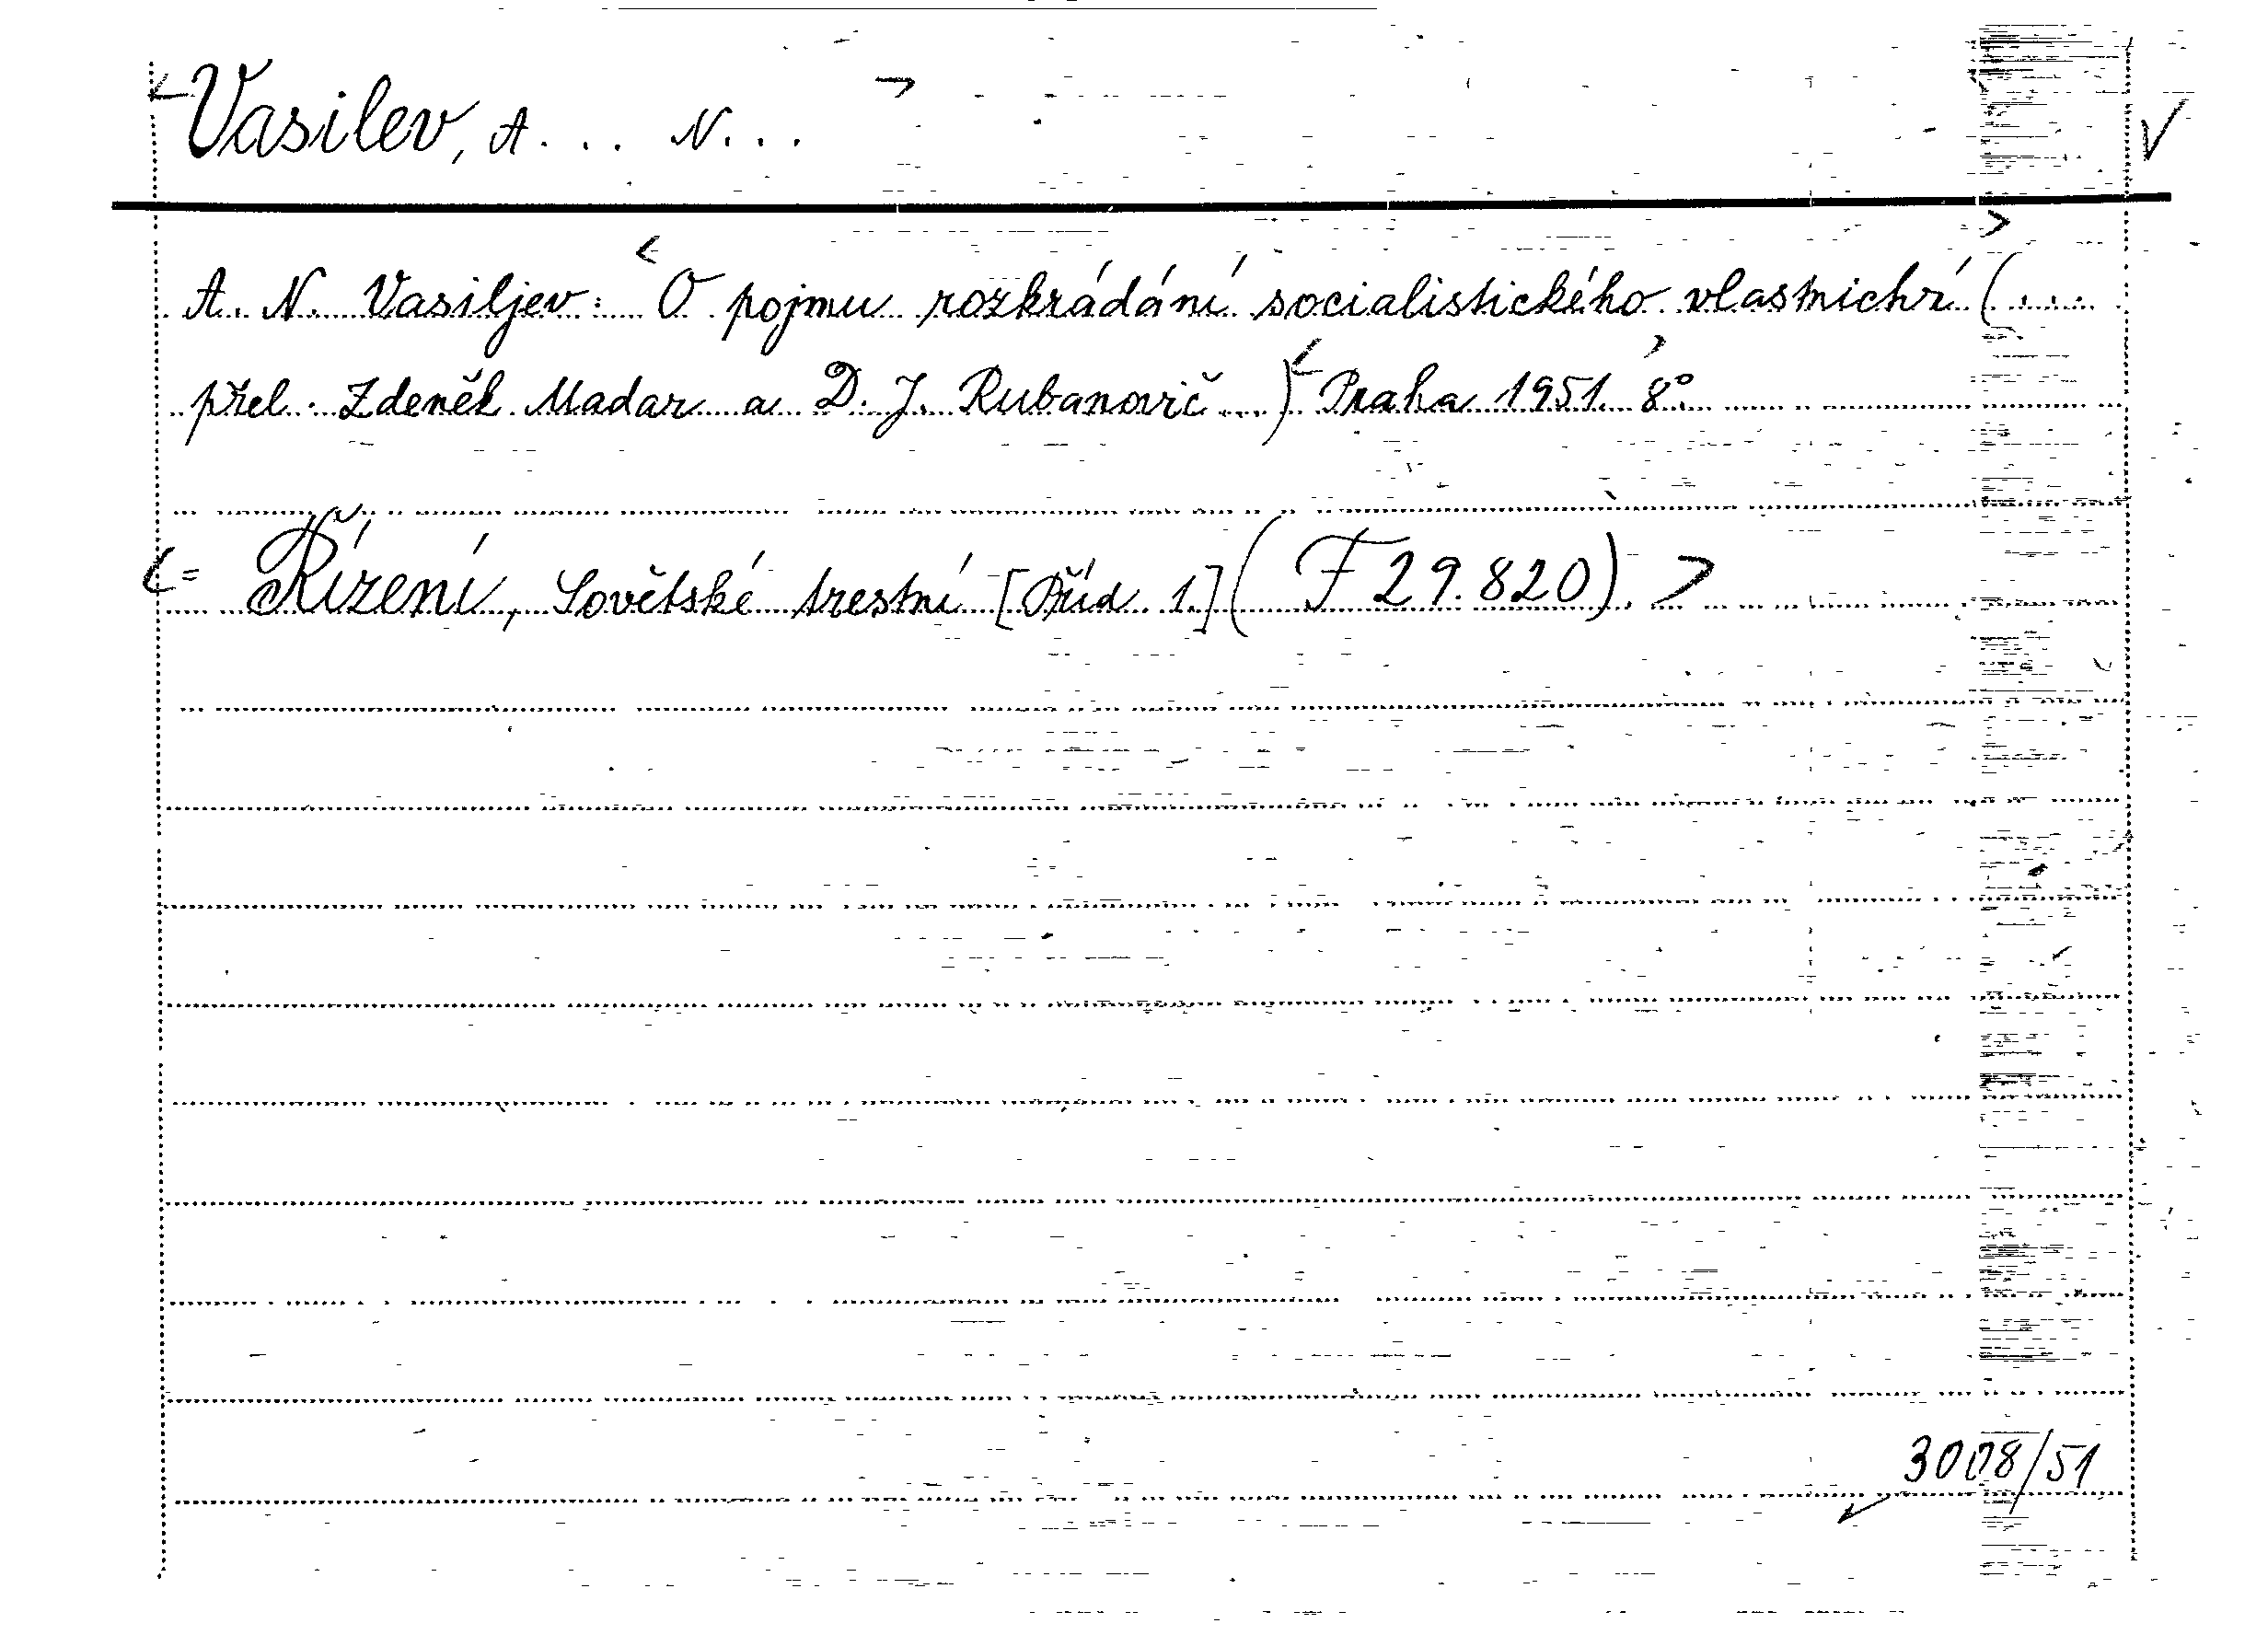 <Vasilev, A... N...>
A. N. Vasiljev: <O pojmu rozkrádání socialistického vlastnictví (...>
přel. Zdeněk Madar a D. J. Rubanovič...) <Praha 1951. 8°.>
<= Řízení, Sovětské trestní [Příd. 1.] (F 29.820).>
3008/51